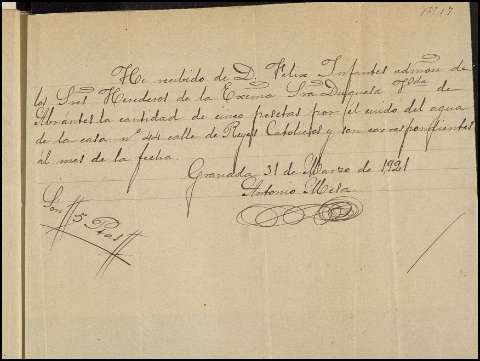 Nº 17
He recibido de D. Felix Infantes admón de
los Sres Herederos de la Excma Sra Duquesa Vda de
Abrantes la cantidad de cinco pesetas por el cuido del agua
de la casa nº 44 calle de Reyes Catolicos y son correspondientes
al mes de la fecha.
Granada 31 de Marzo de 1921
Antonio Mesa
Son # 5 Ptas #